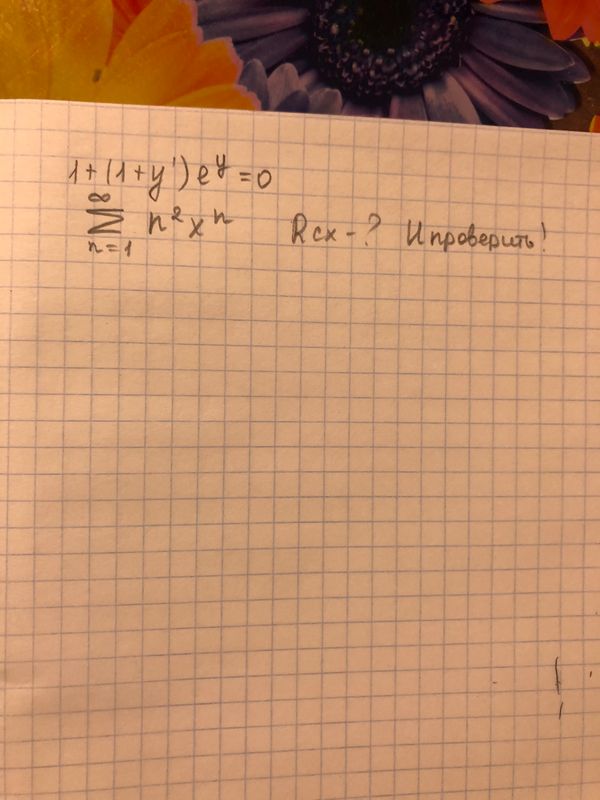 1+(1+y')e^y=0
∞
∑ n²xⁿ Rсх-? И проверить!
n=1